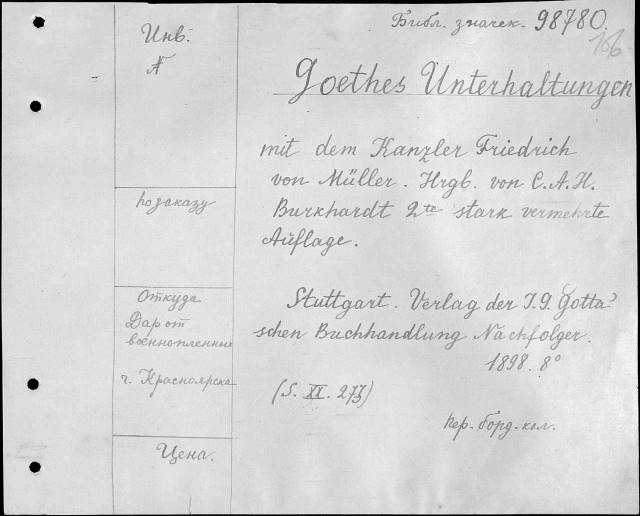 Библ. значек. 98780.
166
Инв.
A
Goethes Unterhaltungen
mit dem Kanzler Friedrich
von Müller. Hrgb. von C.A.H.
Burkhardt 2te stark vermehrte
Auflage.
по заказу
Откуда
Дар от
военнопленных
г. Красноярска
Stuttgart. Verlag der J.G. Cotta'
schen Buchhandlung Nachfolger.
1898. 8°
(S. XI. 273)
Пер. борд. кол.
Цена.